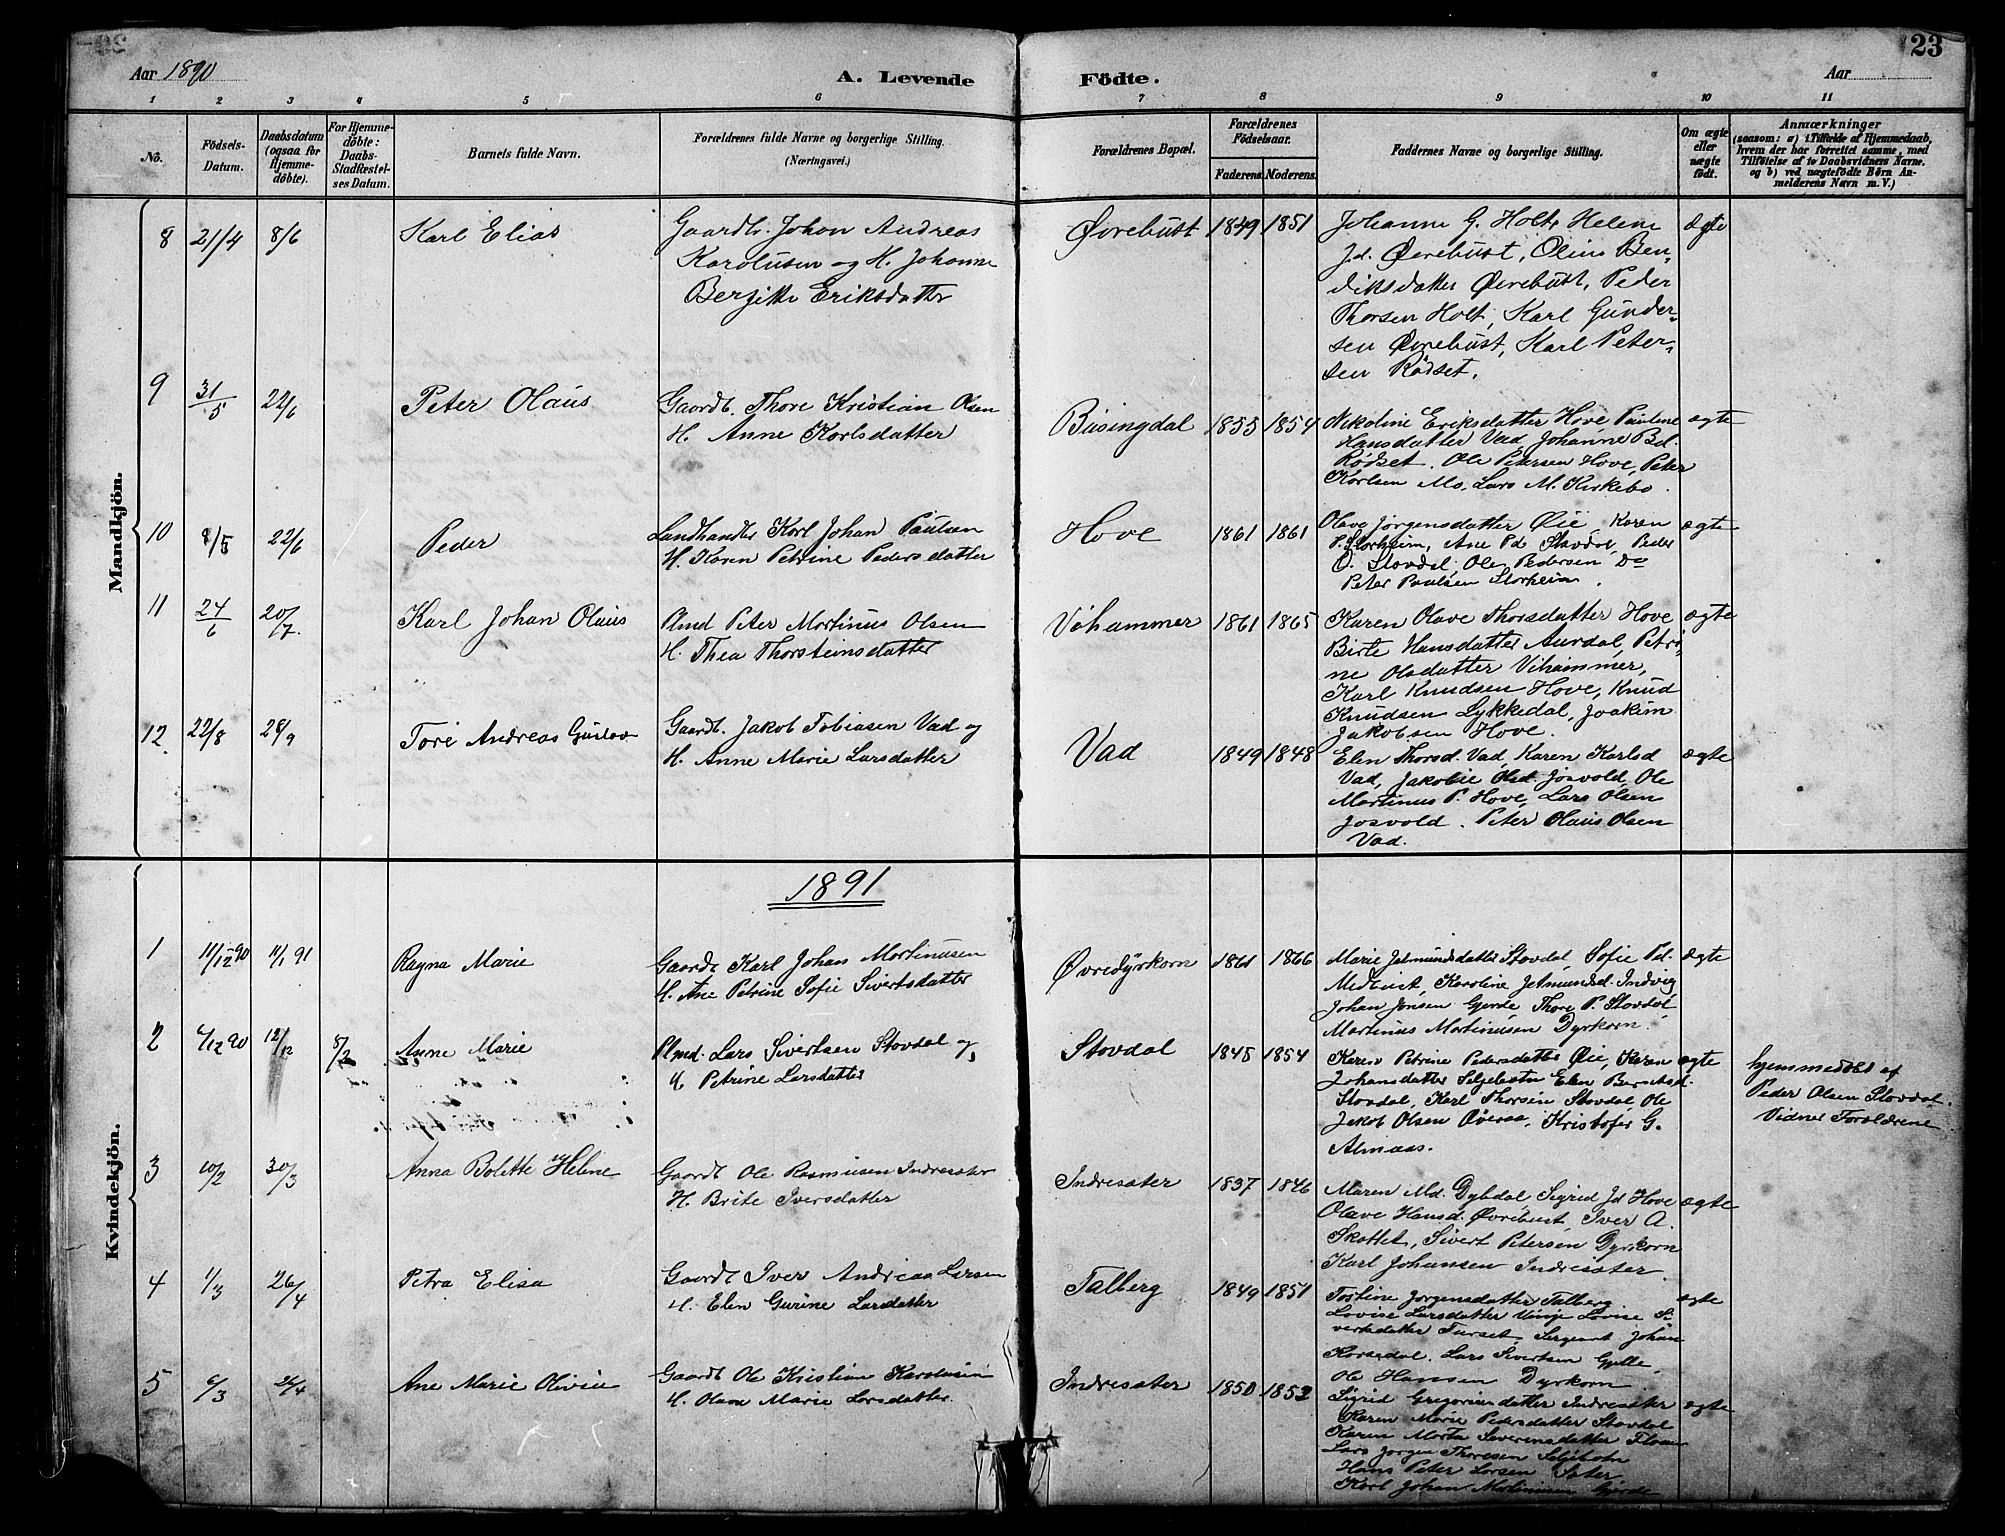 Aar 1890
A. Levende Födte.
Aar
23
1 2 3 4 5 6 7 8 9 10 11
No.
Födsels-
Datum.
Daabsdatum
(ogsaa for
Hjemme-
döbte).
For Hjemme-
döbte:
Daabs-
Stadfæstel-
ses Datum.
Barnets fulde Navn.
Forældrenes fulde Navne og borgerlige Stilling.
(Næringsvei.)
Forældrenes Bopæl.
Forældrenes
Födselsaar.
Faderens. Moderens.
Faddernes Navne og borgerlige Stilling.
Om ægte
eller
uægte
födt.
Anmærkninger
(saasom: a) i Tilfælde af Hjemmedaab,
hvem der har forrettet samme, med
Tilföielse af to Daabsvidners Navne.
og b) ved uægtefödte Börn An-
melderens Navn m. V.)
Mandkjön.
8 21/4 8/6 Karl Elias
Gaardb. Johan Andreas
Karolusen og H. Johanne
Bergitte Eriksdatter
Øvrebust 1849 1851
Johanne G. Holt, Helene
J.d. Øvrebust, Oline Ben-
diksdatter Øvrebust, Peder
Thorsen Holt, Karl Gunder-
sen Øvrebust, Karl Peter-
sen Rödset.
Ægte
9 31/5 22/6 Peter Olaus
Gaardb. Thore Kristian Olsen
H. Anne Karlsdatter
Busingdal 1855 1854
Nikoline Eriksdatter Hove Pauline
Hansdatter Vad Johanne B.d.
Rödset. Ole Petersen Hove, Peter
Karlsen Mo, Lars M. Kirkebo.
ægte
10 8/5 22/6 Peder
Landhandler Karl Johan Paulsen
H. Karen Petrine Pedersdatter
Hove 1861 1861
Olave Jørgensdatter Øie, Karen
P. Storheim, Ane Pd Stavdal, Peder
O. Stovdal, Ole Pedersen Do
Peter Paulsen Storheim.
ægte
11 24/6 20/7. Karl Johan Olaus
Plmd Peter Martinus Olsen
H. Thea Thorsteinsdatter
Vihammer 1861 1865
Karen Olave Thorsdatter Hove
Birte Hansdatter Aurdal, Petri-
ne Olsdatter Vihammer,
Karl Knudsen Hove, Knud
Knudsen Lykkedal, Joakim
Jakobsen Hove.
ægte
12. 22/8 28/9 Tore Andreas Gustav
Gaardb. Jakob Tobiasen Vad og
H. Anne Marie Larsdatter
Vad 1849 1848
Elen Thorsd. Vad, Karen Karlsd
Vad, Jakobie Olsd. Josvold, Ole
Martinus P. Hove, Lars Olsen
Josvold. Peter Olaus Olsen
Vad.
ægte
1891
Kvindekjön.
1 11/12 90 11/1 91 Ragna Marie
Gaardb Karl Johan Martinusen
H. Ane Petrine Sofie Sivertsdatter
Øvredyrkorn 1861 1866
Marie Jetmundsdatter Stovdal, Sofie Pd.
Medbust, Karoline Jetmundsd. Indvig
Johan Jonsen Gjerde, Thore P. Stovdal
Martinus Martinusen Dyrkorn.
Ægte
2 4/12 90 12/12 8/2 Anne Marie
Plmd. Lars Sivertsen Stovdal og
H. Petrine Larsdatter
Stovdal 1848 1854
Karen Petrine Pedersdatter Øie, Karen
Johansdatter Seljebotn Elen Berntsd.
Stovdal, Karl Thorsen Stovdal, Ole
Jakob Olsen Overaa, Kristofer G.
Almaas.
ægte
hjemmedöbt af
Peder Olsen Stovdal.
Vidner Forældrene
3 10/2 30/3 Anna Bolette Helene
Gaardb Ole Rasmusen Indresæter
H. Brite Iversdatter
Indresæter 1837 1846
Maren Md. Dybdal, Sigrid Jd Hove
Olave Hansd. Øvrebust, Iver A.
Skottet, Sivert Petersen Dyrkorn
Karl Johansen Indresæter.
ægte
4 1/3 26/4 Petra Elisa
Gaardb Iver Andreas Larsen
H. Elen Gurine Larsdatter
Talberg 1849 1851
Tostine Jørgensdatter Talberg
Lovise Larsdatter Lovise Si-
vertsdatter Furset, Sergeant Johan
Korsedal. Lars Sivertsen Gjelle,
Ole Hansen Dyrkorn
ægte
5 6/3 26/4 Ane Marie Olivie
Gaardb Ole Kristian Karolusen
H. Olave Marie Larsdatter
Indresæter 1850 1852
Sigrid Gregoriusdatter Indresæter
Karen Marie Pedersdatter Stovdal
Karen Marta Severensdatter
Lars Jørgen Thoresen Seljebotn
Hans Peter Larsen Sæter
Karl Johan Martinusen Gjerde
ægte